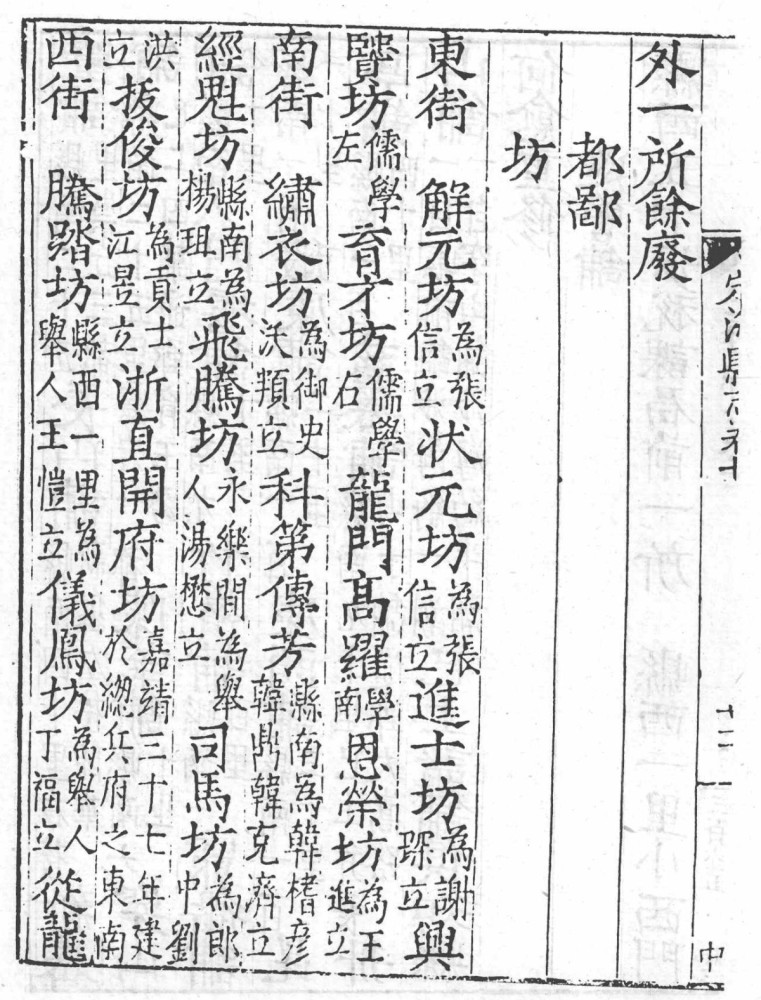 外一所餘廢
都鄙
坊
東街 解元坊為張信立狀元坊為張信立進士坊為謝琛立興
賢坊儒學左育才坊儒學右龍門高躍學南恩榮坊為王進立
南街 繡衣坊為御史沃頖立科第傳芳縣南為韓楮彥韓鼎韓克濟立
經魁坊縣南為楊珇立飛騰坊永樂間為舉人湯懋立司馬坊為郎中劉
洪立拔俊坊為貢士江昱立浙直開府坊嘉靖三十七年建於緫兵府之東南
西街 騰踏坊縣西一里為舉人王愷立儀鳳坊為舉人丁福立從龍
中